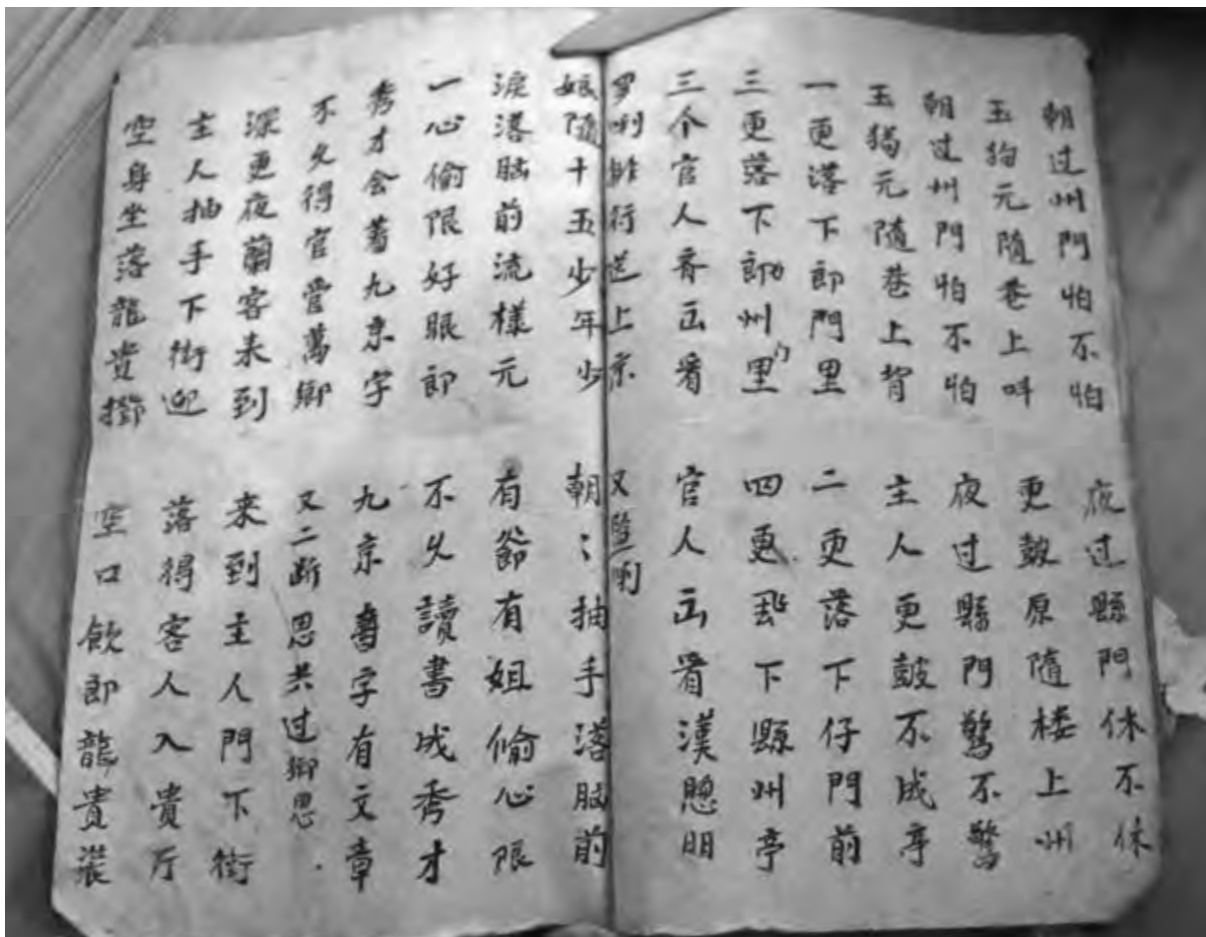 朝过州門怕不怕 夜过縣門休不休
玉狗元隨巷上呌 更鼓原隨楼上州
朝过州門怕不怕 夜过縣門驚不驚
玉元隨巷上背 主人更鼓不成亭
一更落下郎門里 二更落下仔門前
三更落下郎州里 四更下縣州亭
三个官人齐看 官人看漢聰明
州行送上京 又唎
娘隨十五少年少 朝〻抽手落脑前
淚落脑前流樣元 有節有姐偷心限
一心偷限好眼郎 不久讀書成秀才
秀才会著九京字 九京書字有文章
不久得官管萬鄉 又二斷思共过鄉思
深更夜蘭客来到 来到主人門下街
主人抽手下街迎 落得客人入貴厅
空身坐落龍貴 空口飲郎龍貴